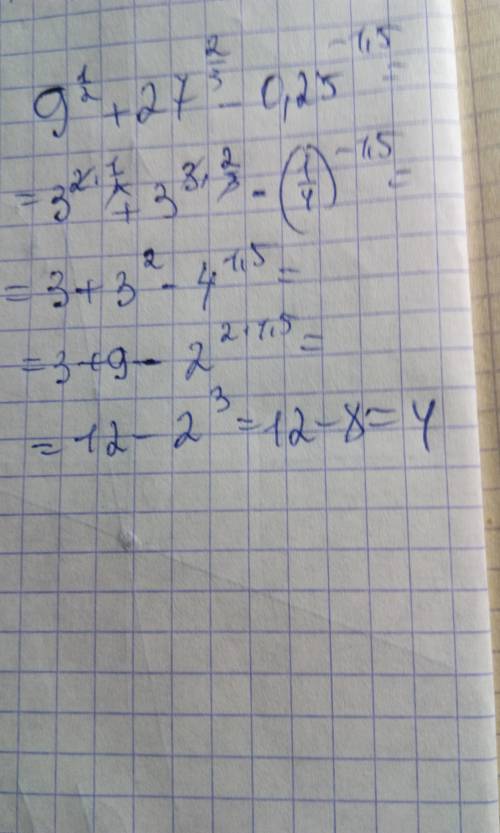 9^{\frac{1}{2}} + 27^{\frac{2}{3}} - 0,25^{-1,5} =
= 3^{2·\frac{1}{2}} + 3^{3·\frac{2}{3}} - (\frac{1}{4})^{-1,5} =
= 3 + 3^{2} - 4^{1,5} =
= 3 + 9 - 2^{2·1,5} =
= 12 - 2^{3} = 12 - 8 = 4